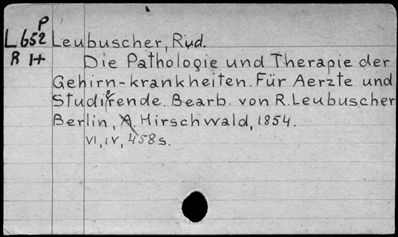 P
L652 Leubuscher, Rud.
R 1t Die Pathologie und Therapie der
Gehirn-krankheiten. Für Aerzte und
Studierende. Bearb. von R. Leubuscher
Berlin, A. Hirschwald, 1854.
VI, IV, 458 s.